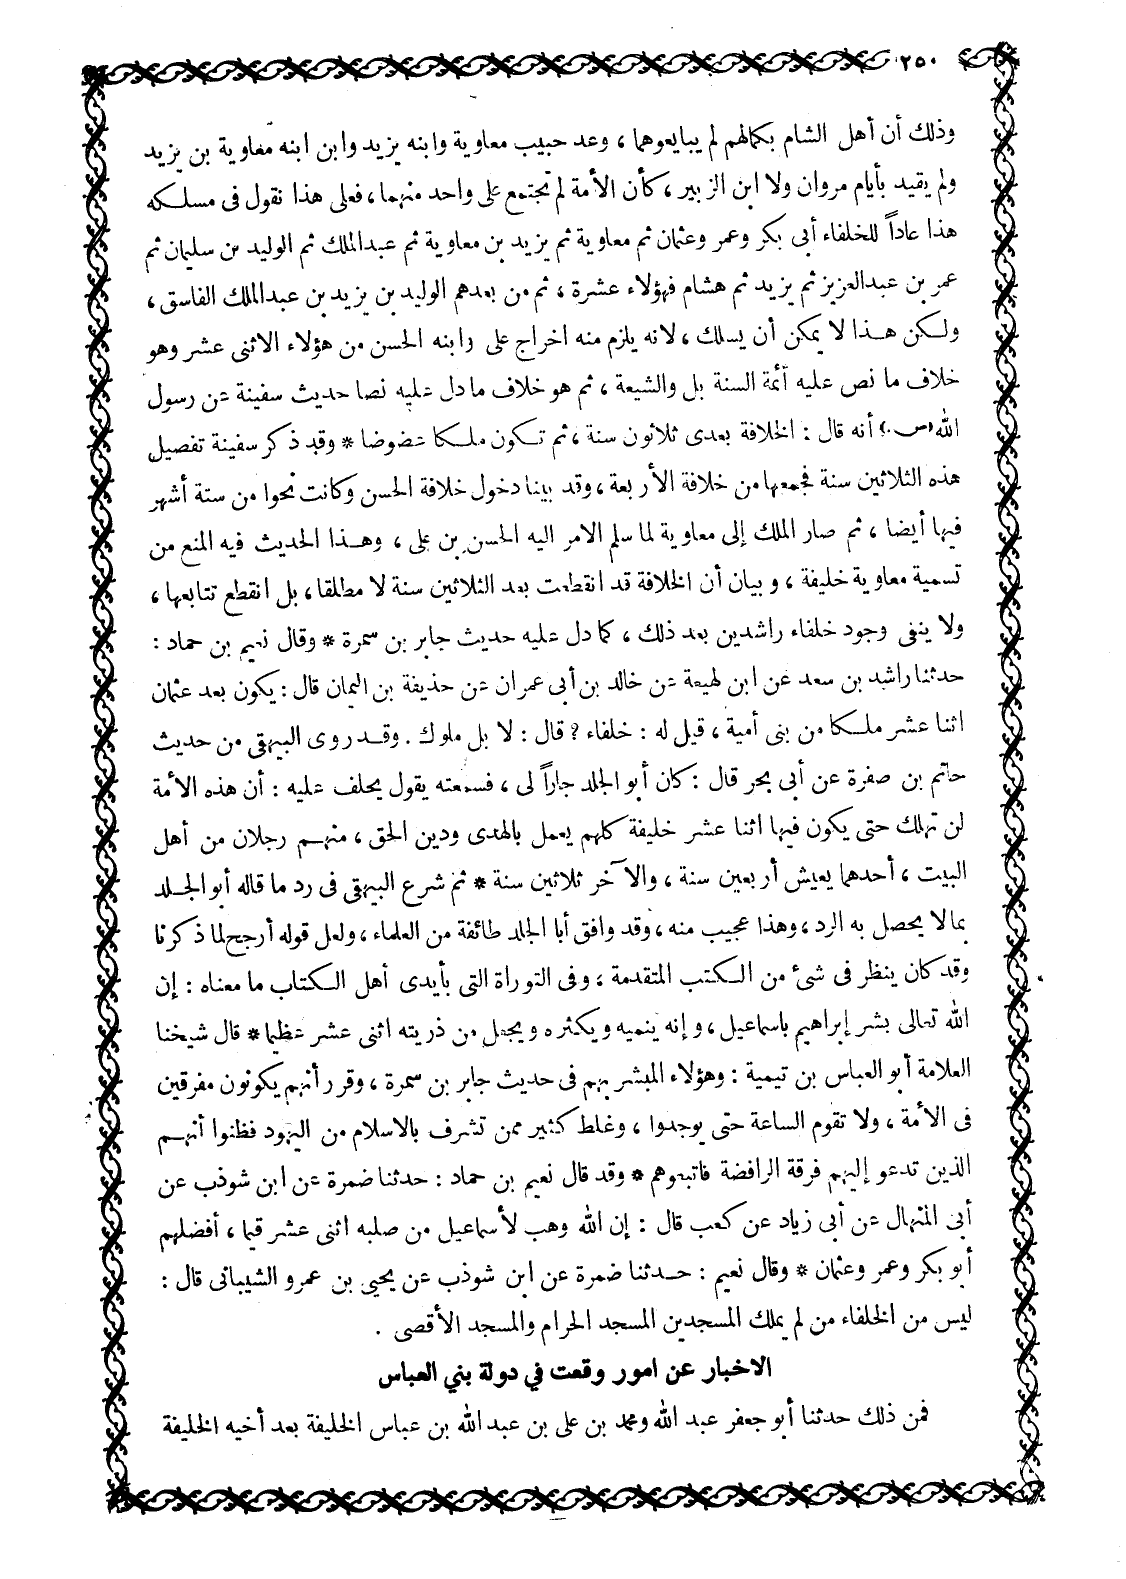 ٢٥٠
وذلك أن أهل الشام بكمالهم لم يبايعوهما ، وعد حبيب معاوية وابنه يزيد وابن ابنه معاوية بن يزيد
ولم يقيد بأيام مروان ولا ابن الزبير ، كأن الأمة لم تجتمع على واحد منهما ، فعلى هذا نقول فى مسلكه
هذا عاداً للخلفاء أبى بكر وعمر وعثمان ثم معاوية ثم يزيد بن معاوية ثم عبدالملك ثم الوليد بن سليمان ثم
عمر بن عبدالعزيز ثم يزيد ثم هشام فهؤلاء عشرة ، ثم من بعدهم الوليد بن يزيد بن عبدالملك الفاسق ،
ولكن هذا لا يمكن أن يسلك ، لانه يلزم منه اخراج على وابنه الحسن من هؤلاء الاثنى عشر وهو
خلاف ما نص عليه أئمة السنة بل والشيعة ، ثم هو خلاف ما دل عليه نصا حديث سفينة عن رسول
الله (ص) أنه قال : الخلافة بعدى ثلاثون سنة ، ثم تكون ملكا عضوضا * وقد ذكر سفينة تفصيل
هذه الثلاثين سنة فجمعها من خلافة الأربعة ، وقد بينا دخول خلافة الحسن وكانت نحوا من ستة أشهر
فيها أيضا ، ثم صار الملك إلى معاوية لما سلم الامر اليه الحسن بن على ، وهذا الحديث فيه المنع من
تسمية معاوية خليفة ، وبيان أن الخلافة قد انقطعت بعد الثلاثين سنة لا مطلقا ، بل انقطع تتابعها ،
ولا ينفى وجود خلفاء راشدين بعد ذلك ، كما دل عليه حديث جابر بن سمرة * وقال نعيم بن حماد :
حدثنا راشد بن سعد عن ابن لهيعة عن خالد بن أبى عمران عن حذيفة بن اليمان قال : يكون بعد عثمان
اثنا عشر ملكا من بنى أمية ، قيل له : خلفاء ؟ قال : لا بل ملوك . وقد روى البيهقى من حديث
حاتم بن صفرة عن أبى بحر قال : كان أبو الجلد جاراً لى ، فسمعته يقول يحلف عليه : أن هذه الأمة
لن تهلك حتى يكون فيها اثنا عشر خليفة كلهم يعمل بالهدى ودين الحق ، منهم رجلان من أهل
البيت ، أحدهما يعيش أربعين سنة ، والآخر ثلاثين سنة * ثم شرع البيهقى فى رد ما قاله أبو الجلد
بما لا يحصل به الرد ، وهذا عجيب منه ، وقد وافق أبا الجلد طائفة من العلماء ، ولعل قوله أرجح لما ذكرنا
وقد كان ينظر فى شئ من الكتب المتقدمة ، وفى التوراة التى بأيدى أهل الكتاب ما معناه : إن
الله تعالى بشر إبراهيم باسماعيل ، وإنه ينميه ويكثره ويجعل من ذريته اثنى عشر عظيما * قال شيخنا
العلامة أبو العباس بن تيمية : وهؤلاء المبشر بهم فى حديث جابر بن سمرة ، وقرر أنهم يكونون مفرقين
فى الأمة ، ولا تقوم الساعة حتى يوجدوا ، وغلط كثير ممن تشرف بالاسلام من اليهود فظنوا أنهم
الذين تدعو إليهم فرقة الرافضة فاتبعوهم * وقد قال نعيم بن حماد : حدثنا ضمرة عن ابن شوذب عن
أبى المنهال عن أبى زياد عن كعب قال : إن الله وهب لأسماعيل من صلبه اثنى عشر قيما ، أفضلهم
أبو بكر وعمر وعثمان * وقال نعيم : حدثنا ضمرة عن ابن شوذب عن يحيى بن عمرو الشيبانى قال :
ليس من الخلفاء من لم يملك المسجدين المسجد الحرام والمسجد الأقصى .
الاخبار عن امور وقعت في دولة بني العباس
فمن ذلك حدثنا أبو جعفر عبد الله ومحمد بن على بن عبد الله بن عباس الخليفة بعد أخيه الخليفة